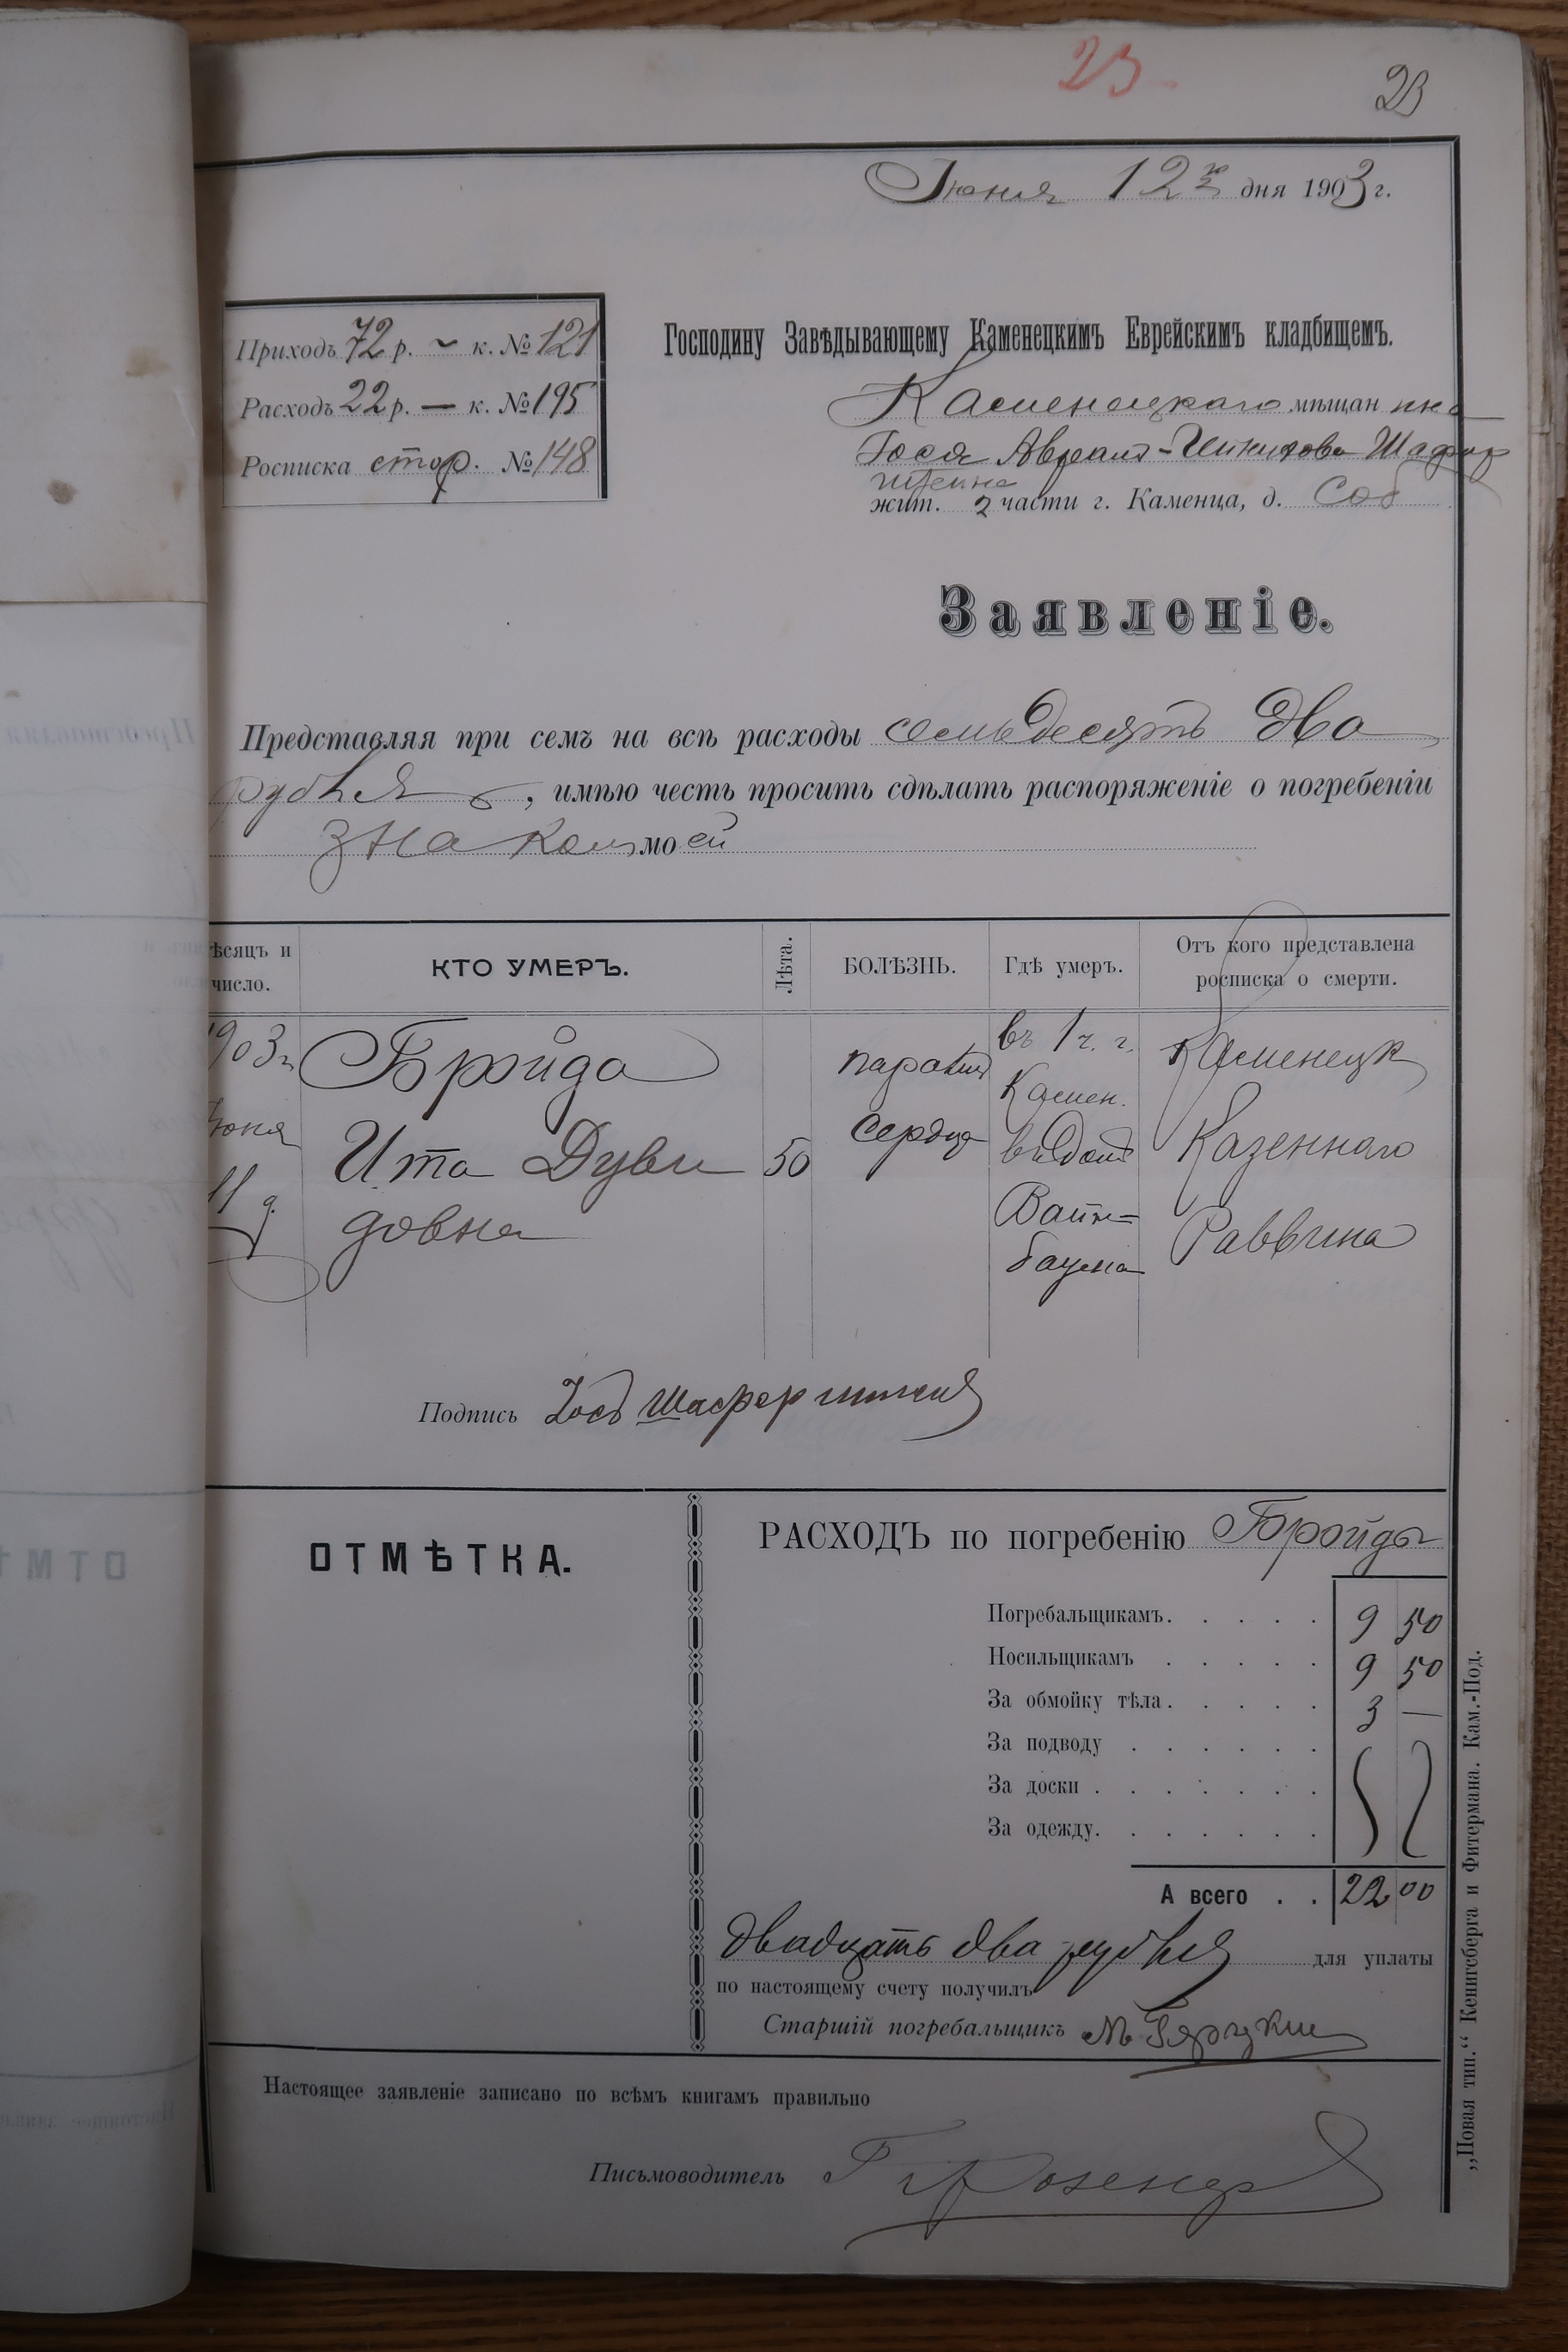 23
23
Іюня 12го дня 1903 г.
Приходъ 72 р. ~ к. № 121
Расходъ 22 р. — к. № 195
Росписка стор. № 148
Господину Завѣдывающему Каменецкимъ Еврейскимъ кладбищемъ.
Каменецкаго мѣщанина
Іося Аврамъ-Ицикова Шафер
штейна
жит. 2 части г. Каменца, д. Соб
Заявленіе.
Представляя при семъ на всѣ расходы семьдесятъ два
рубля, имѣю честь просить сдѣлать распоряженіе о погребеніи
знакомой
ѣсяцъ и число.
КТО УМЕРЪ.
Лѣта.
БОЛѢЗНЬ.
Гдѣ умеръ.
Отъ кого представлена росписка о смерти.
1903 г.
Іюня
11 д.
Бройда
Ита Дуви
довна
50
паралич
сердца
въ 1 ч. г.
Камен.
въ домѣ
Вайн=
баума
Каменецк
Казеннаго
Раввина
Подпись Іось Шаферштейн
ОТМѢТКА.
РАСХОДЪ по погребенію Бройды
Погребальщикамъ. 9 50
Носильщикамъ 9 50
За обмойку тѣла. 3 —
За подводу
За доски
За одежду.
А всего 22 00
Двадцать два рубля для уплаты
по настоящему счету получилъ
Старшій погребальщикъ
Настоящее заявленіе записано по всѣмъ книгамъ правильно
Письмоводитель
„Новая тип.“ Кенигсберга и Фитермана. Кам.-Под.